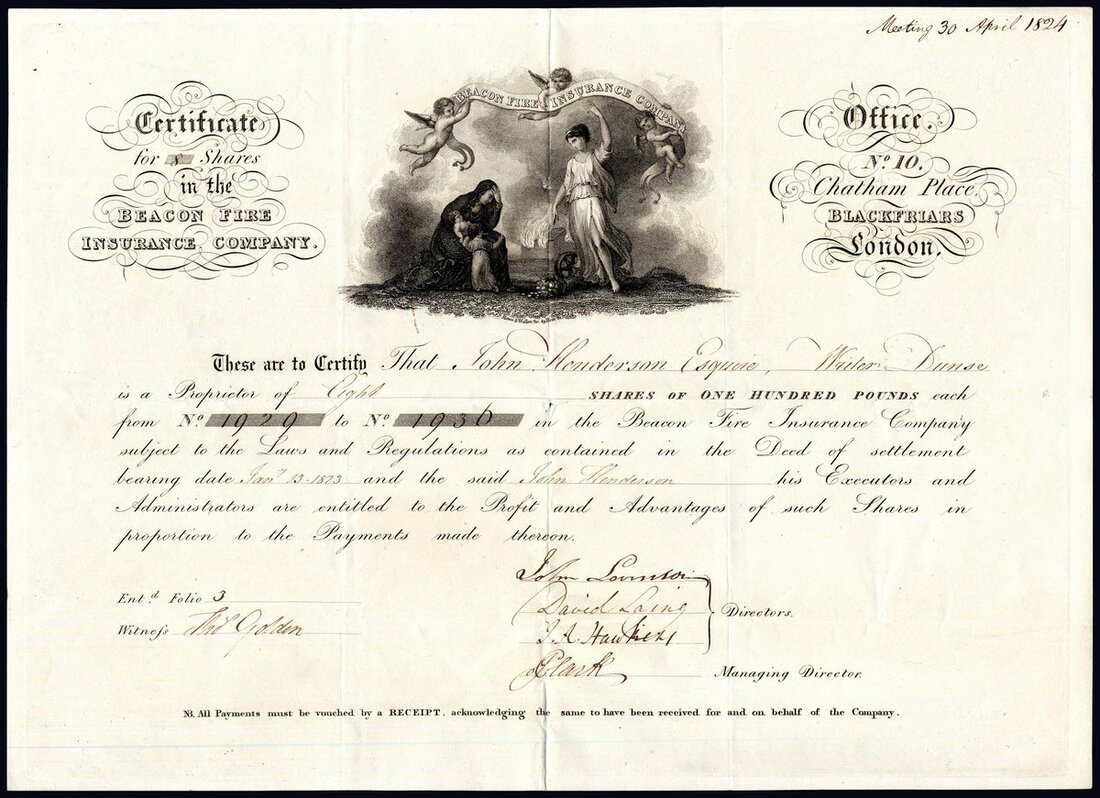 Meeting 30 April 1824
Certificate
for 8 Shares
in the
BEACON FIRE
INSURANCE COMPANY.
BEACON FIRE INSURANCE COMPANY
Office.
No. 10.
Chatham Place,
BLACKFRIARS
London.
These are to Certify That John Henderson Esquire, Writer Dunse
is a Proprietor of Eight SHARES OF ONE HUNDRED POUNDS each
from No. 1929 to No. 1936 in the Beacon Fire Insurance Company
subject to the Laws and Regulations as contained in the Deed of settlement
bearing date Jany 13 1823 and the said John Henderson his Executors and
Administrators are entitled to the Profit and Advantages of such Shares in
proportion to the Payments made thereon.
John
David Laing
J A Hawkins
Directors.
Entd Folio 3
Witness Thos Golden
Clark Managing Director.
NB. All Payments must be vouched by a RECEIPT, acknowledging the same to have been received for and on behalf of the Company.